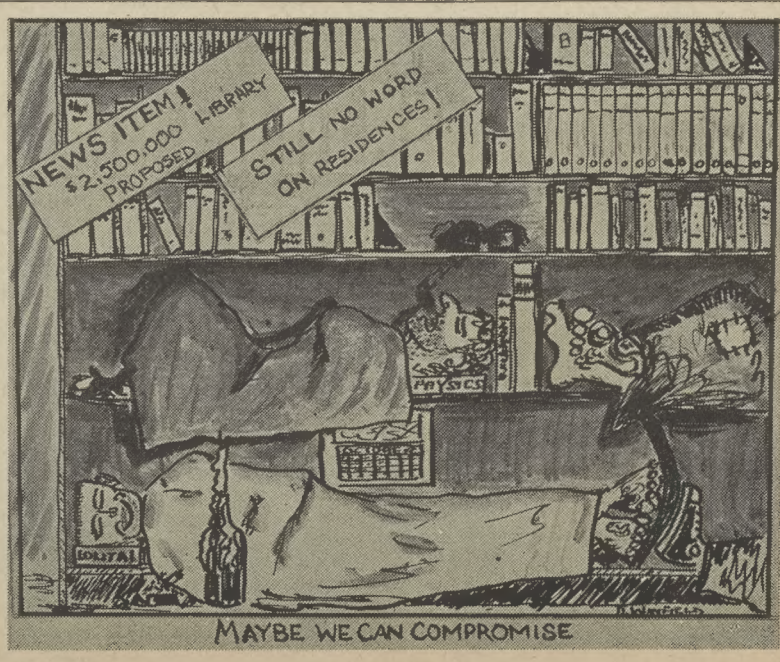 NEWS ITEM!
$2,500,000 LIBRARY
PROPOSED
STILL NO WORD
ON RESIDENCES!
B
PHYSICS
OCTOBER
LOLITA
D. WINFIELD
MAYBE WE CAN COMPROMISE